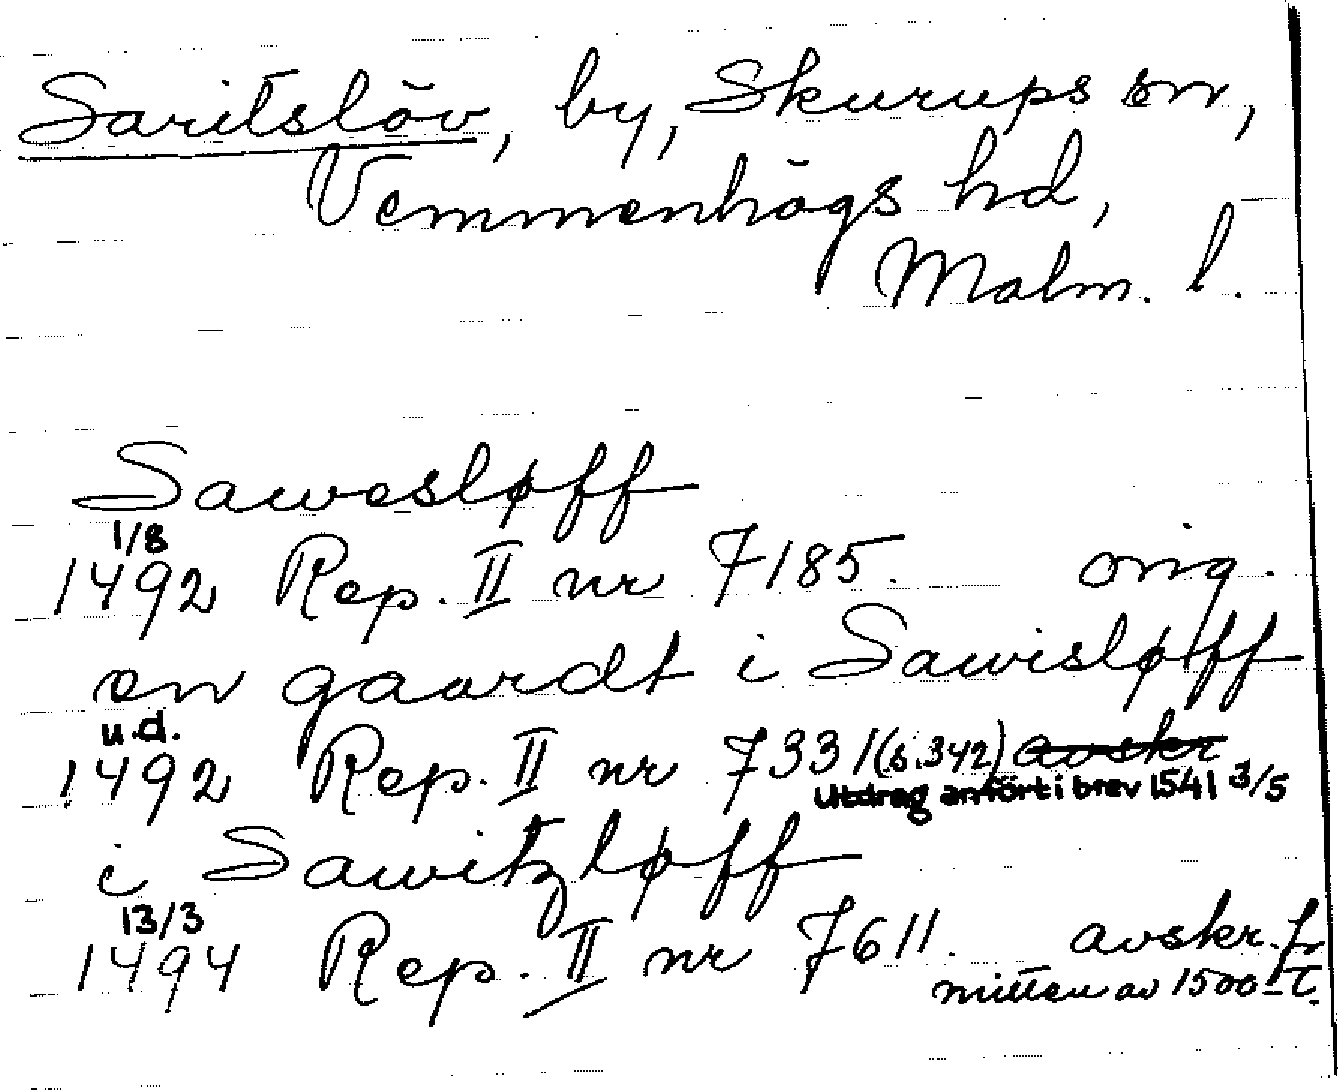 Saritslöv, by, Skurups sn,
Vemmenhögs hd,
Malm. l.
Sawesløff
1/8
1492 Rep. II nr 7185. orig.
en gaardt i Sawisløff
u.d.
1492 Rep. II nr 7331 (s.342) avskr
Utdrag anfört i brev 1541 3/5
i Sawitzløff
13/3
1494 Rep. II nr 7611. avskr. fr
mitten av 1500-t.